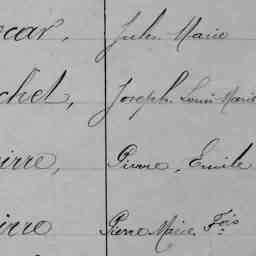 car, Jules Marie
chet, Joseph Louis Marie
irre, Pierre, Emile
irre Pierre Marie Fois